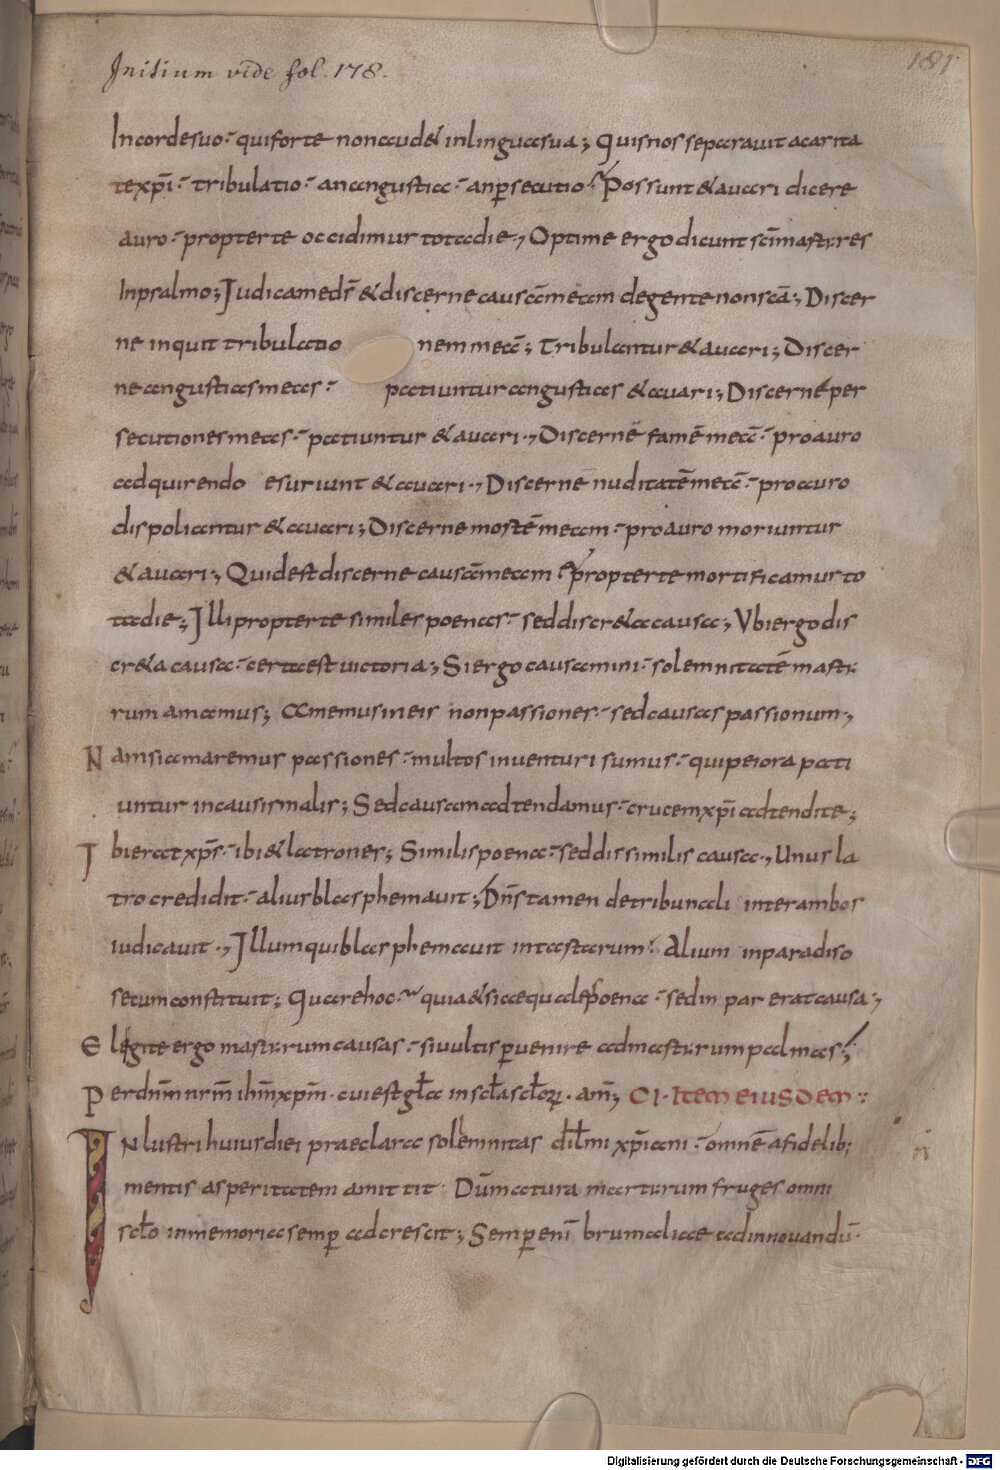 Initium vide fol. 178.
181
In corde suo · qui forte non audet in lingua sua ; Quis nos separavit a carita
te xp̄i · tribulatio · an angustia · an ꝑsecutio · Possunt & avari dicere
auro · propter te occidimur tota die ·, Optime ergo dicunt sc̄i martires
In psalmo ; Iudica me d̄s & discerne causā meam de gente non sc̄a ; Discer
ne inquit tribulatio nem meā ; Tribulantur & avari ; Discer
ne angustias meas · patiuntur angustias & avari ; Discerne per
secutiones meas · patiuntur & avari ·, Discerne famē meā · pro auro
adquirendo esuriunt & avari ·, Discerne nuditatē meā · pro auro
dispoliantur & avari ; Discerne mortē meam · pro auro moriuntur
& avari ; Quid est discerne causā meam · propter te mortificamur to
ta die ; Illi propter te similes poenas · sed discreta causa ; Ubi ergo dis
creta causa · certa est victoria ; Si ergo causa mini · solemnitatē marti
rum amamus ; Amemus in eis non passiones · sed causas passionum ·,
Nam si amaremus passiones · multos inventuri sumus · qui peiora pati
untur in causis malis ; Sed causam adtendamus · crucem xp̄i adtendite ;
Ibi erat xp̄s · ibi & latrones ; Similis poena · sed dissimilis causa ·, Unus la
tro credidit · alius blasphemavit ; Dn̄s tamen de tribunali inter ambos
iudicavit ·, Illum qui blasphemavit in tartarum · Alium in paradiso
secum constituit ; Quare hoc · quia & si aequalis poena · sed in par erat causa ;
Elegite ergo martirum causas · si vultis ꝑvenire ad martirum palmas ;
Per dn̄m nr̄m ih̄m xp̄m · cui est gl̄a in sc̄la sc̄lorꝝ · am̄ ; CI · Item eiusdem :
Inlustri huius diei praeclara solemnitas dil̄mi xp̄iani · omnē a fidelib;
mentis asperitatem amittit · Dūm atura martirum fruges omni
sc̄lo in memoria semꝑ adcrescit ; Semꝑ enī brumali ae adinnovandū ·
Digitalisierung gefördert durch die Deutsche Forschungsgemeinschaft - DFG